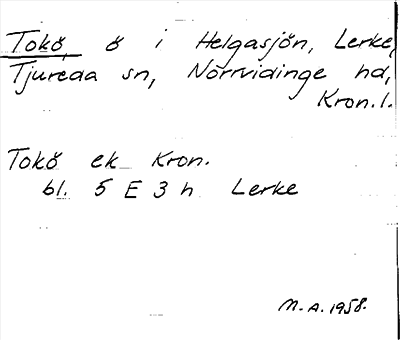 Tokö, ö i Helgasjön, Lerke,
Tjureda sn, Norrvidinge hd,
Kron. l.
Tokö ek Kron.
bl. 5 E 3 h Lerke
M.A. 1958.